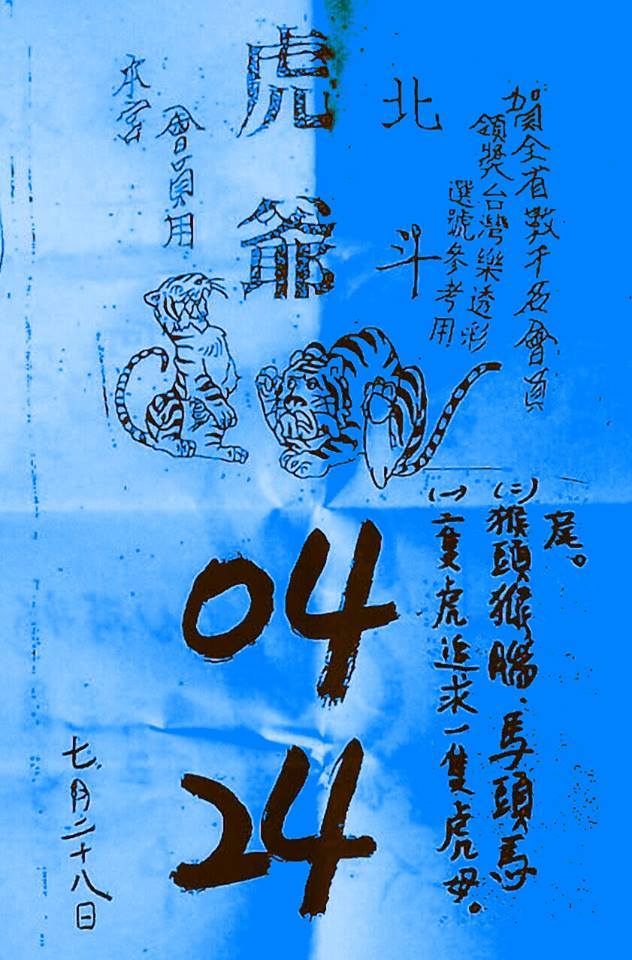 賀全省數千名會員
領獎台灣樂透彩
選號參考用
北斗
虎爺
本宮
會員用
(一)二隻虎追求一隻虎母。
(二)猴頭猴腦、馬頭馬
尾。
04
24
七月二十八日